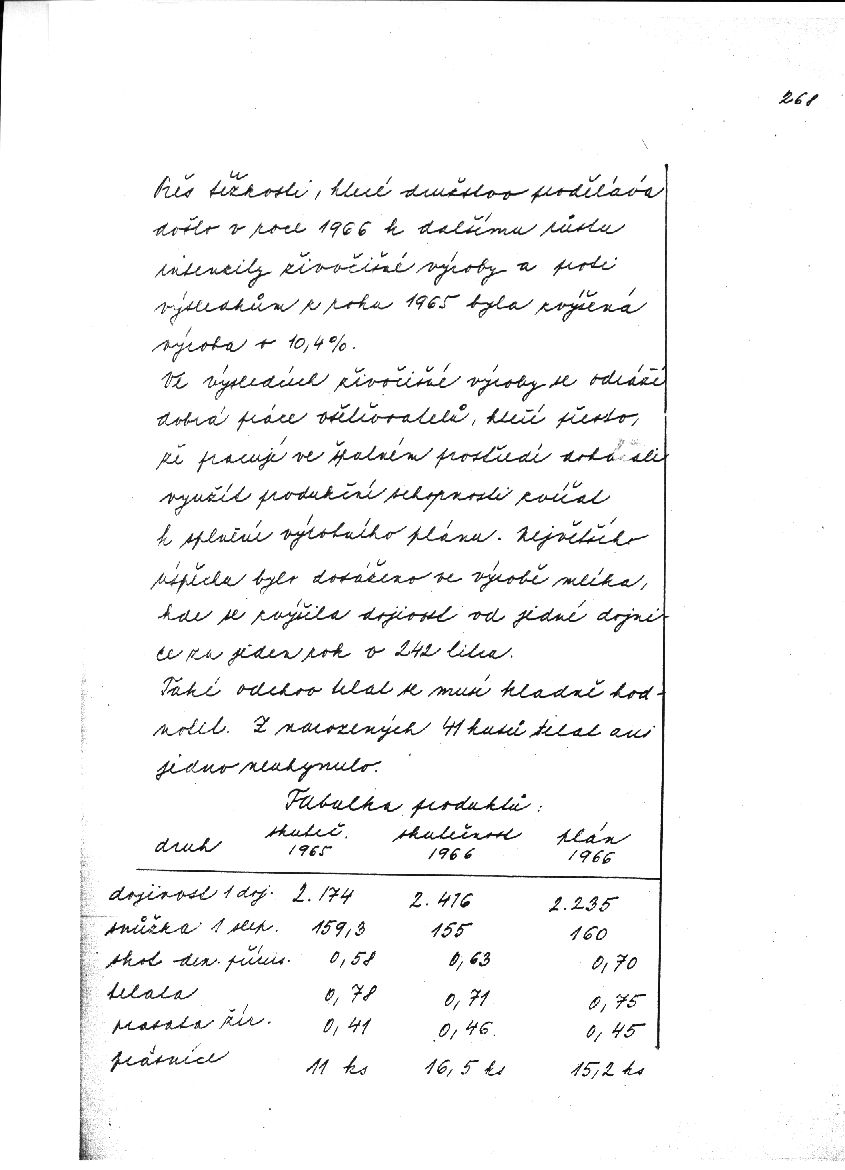 268
Přes těžkosti, které družstvo prodělává
došlo v roce 1966 k dalšímu růstu
intenzity živočišné výroby a proti
výsledkům z roku 1965 byla zvýšená
výroba o 10,4%.
Ve výsledcích živočišné výroby se odráží
dobrá práce ošetřovatelů, kteří přesto,
že pracují ve špatném prostředí dokázali
využít produkční schopnosti zvířat
k splnění výrobního plánu. Největšího
úspěchu bylo dosaženo ve výrobě mléka,
kde se zvýšila dojivost od jedné dojni-
ce za jeden rok o 242 litra.
Také odchov telat se musí kladně hod-
notit. Z narozených 41 kusů telat ani
jedno neuhynulo.
Tabulka produktů:
druh skuteč. 1965 skutečnost 1966 plán 1966
dojivost 1 doj. 2.174 2.416 2.235
snůžka 1 slep. 159,3 155 160
skot den. přírus. 0,58 0,63 0,70
telata 0,78 0,71 0,75
prasata žír. 0,41 0,46 0,45
prasnice 11 ks 16,5 ks 15,2 ks